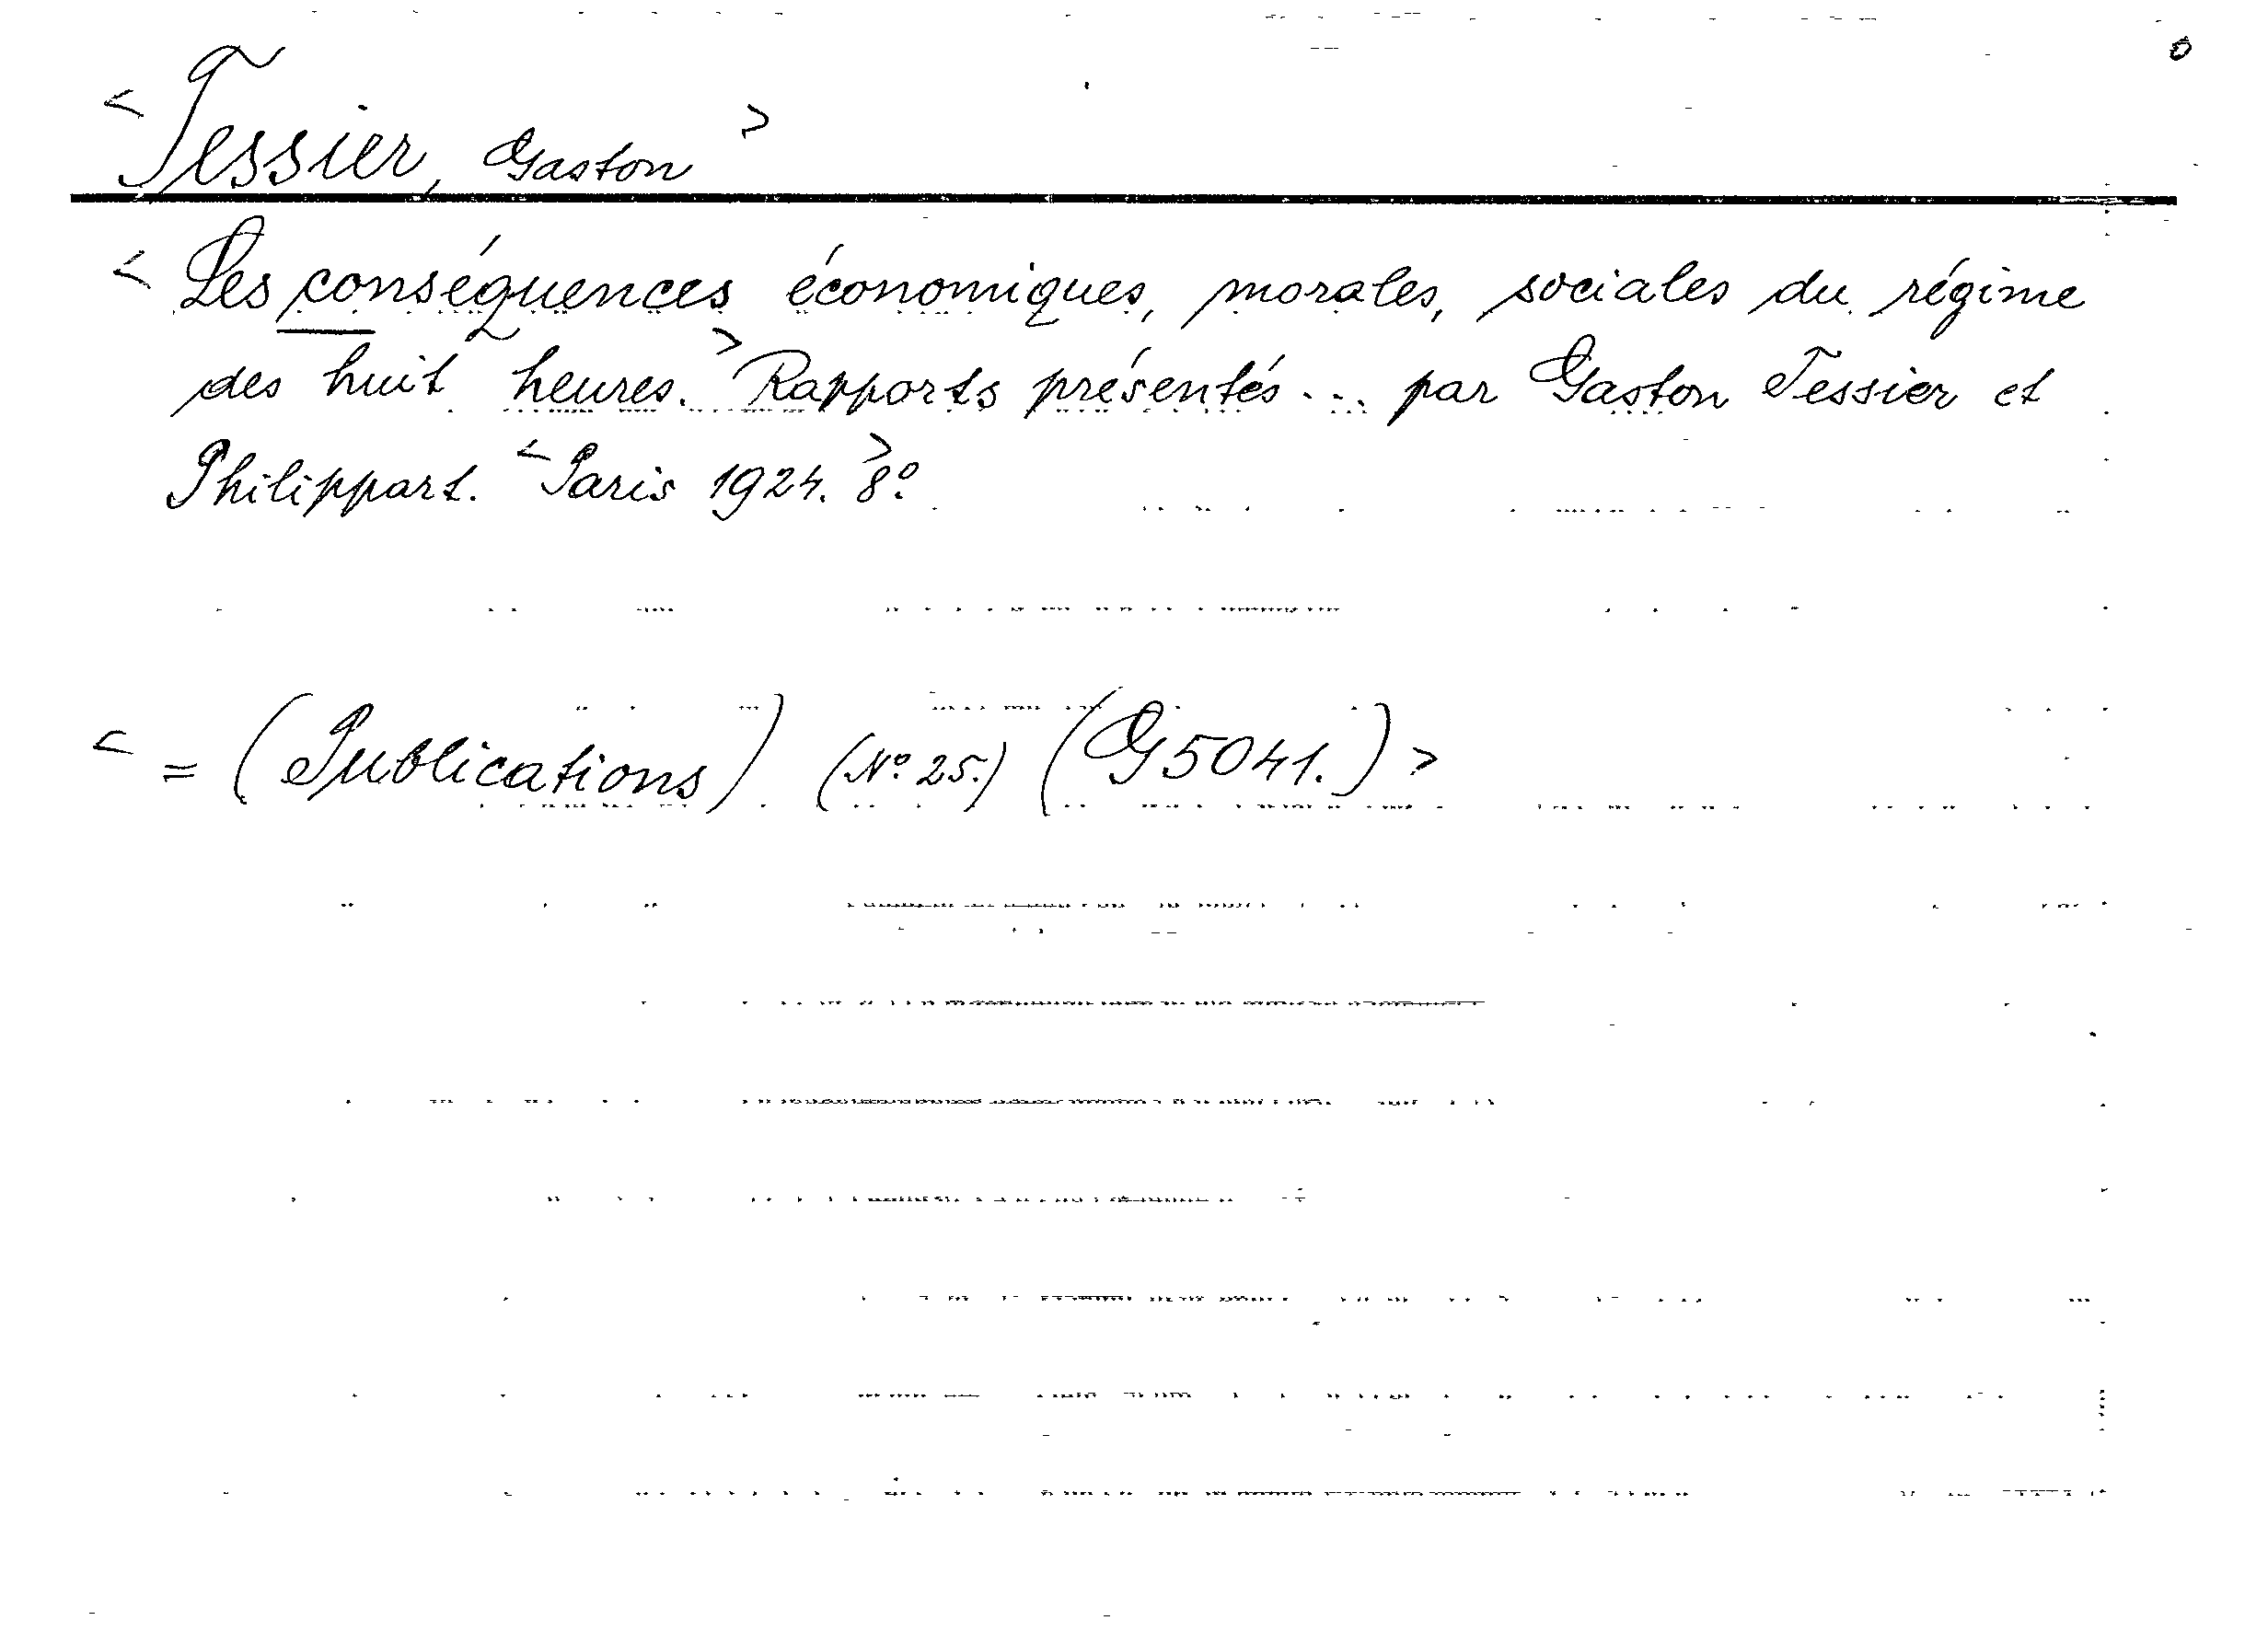 o
< Tessier, Gaston >
< Les conséquences économiques, morales, sociales du régime
des huit heures. > Rapports présentés... par Gaston Tessier et
Philippart. < Paris 1924. > 8º.
< = (Publications) (Nº 25.) (G 5041.) >